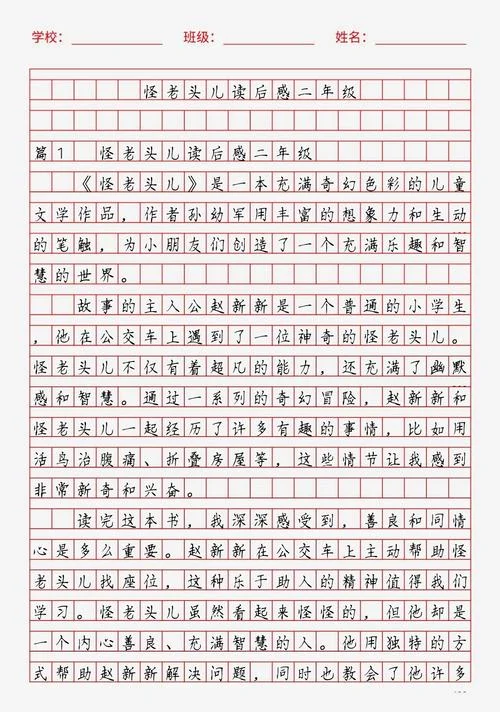 学校： 班级： 姓名：
怪老头儿读后感二年级
篇1 怪老头儿读后感二年级
《怪老头儿》是一本充满奇幻色彩的儿童
文学作品，作者孙幼军用丰富的想象力和生动
的笔触，为小朋友们创造了一个充满乐趣和智
慧的世界。
故事的主人公赵新新是一个普通的小学生
，他在公交车上遇到了一位神奇的怪老头儿。
怪老头儿不仅有着超凡的能力，还充满了幽默
感和智慧。通过一系列的奇幻冒险，赵新新和
怪老头儿一起经历了许多有趣的事情，比如用
活鸟治腹痛、折叠房屋等，这些情节让我感到
非常新奇和兴奋。
读完这本书，我深深感受到，善良和同情
心是多么重要。赵新新在公交车上主动帮助怪
老头儿找座位，这种乐于助人的精神值得我们
学习。怪老头儿虽然看起来怪怪的，但他却是
一个内心善良、充满智慧的人。他用独特的方
式帮助赵新新解决问题，同时也教会了他许多